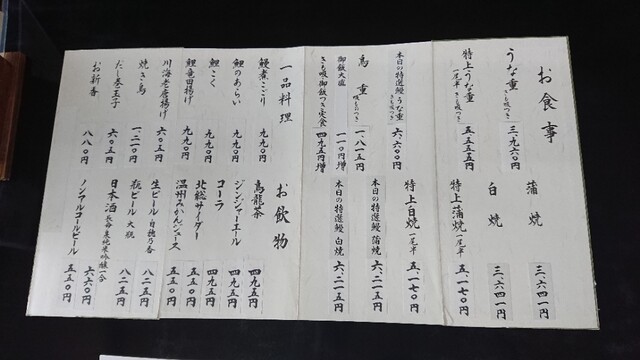 お食事
うな重 きも吸つき 三、九六〇円
特上うな重 一尾半 きも吸つき 五、五五五円
本日の特選鰻 うな重 きも吸つき 六、六〇〇円
鳥重 吸ものつき 一、八一五円
御飯大盛 一一〇円増
きも吸御飯つき定食 四九五円増
蒲焼 三、六四一円
白焼 三、六四一円
特上蒲焼 一尾半 五、一七〇円
特上白焼 一尾半 五、一七〇円
本日の特選鰻 蒲焼 六、二一五円
本日の特選鰻 白焼 六、二一五円
一品料理
鰻煮こごり 九九〇円
鯉のあらい 九九〇円
鯉こく 九九〇円
鯉竜田揚げ 九九〇円
川海老唐揚げ 六〇五円
焼き鳥 一、二一〇円
だし巻玉子 六〇五円
お新香 八八〇円
お飲物
烏龍茶 四九五円
ジンジャーエール 四九五円
コーラ 四九五円
北総サイダー 五五〇円
温州みかんジュース 五五〇円
生ビール 白穂乃香 八二五円
瓶ビール 大瓶 八二五円
日本酒 純米吟醸一合 六六〇円
ノンアルコールビール 五五〇円